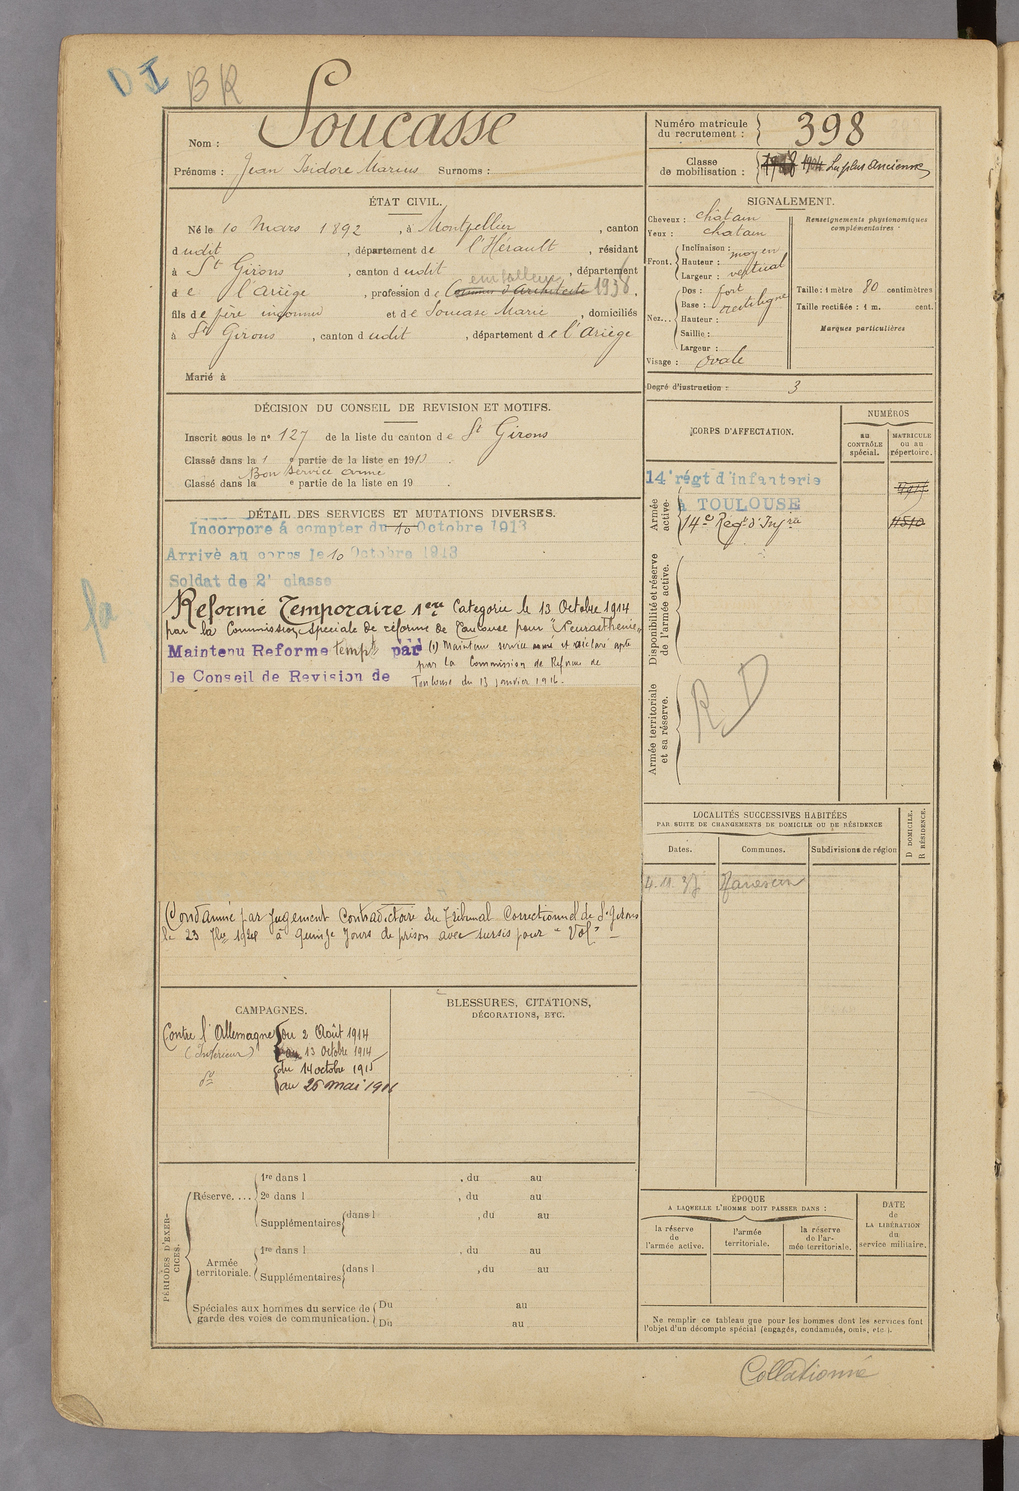 DI BR
Nom : Soucasse
Prénoms : Jean Isidore Marius Surnoms :
Numéro matricule du recrutement : 398
Classe de mobilisation : 1918 1904 La plus ancienne
ÉTAT CIVIL.
Né le 10 Mars 1892, à Montpellier, canton
dudit, département de l'Hérault, résidant
à St Girons, canton dudit, département
emballeur
de l'Ariège, profession de Commis d'Architecte 1938,
fils de père inconnu et de Soucasse Marie, domiciliés
à St Girons, canton dudit, département de l'Ariège
Marié à
SIGNALEMENT.
Cheveux : chatain
Yeux : chatain
Front. Inclinaison : moyen
Hauteur : vertical
Largeur :
Nez... Dos : fort
Base : rectiligne
Hauteur :
Saillie :
Largeur :
Visage : ovale
Renseignements physionomiques complémentaires :
Taille : 1 mètre 80 centimètres
Taille rectifiée : 1 m. cent.
Marques particulières
Degré d'instruction : 3
DÉCISION DU CONSEIL DE REVISION ET MOTIFS.
Inscrit sous le no 127 de la liste du canton de St Girons
Classé dans la 1e partie de la liste en 1913.
Bon service armé
Classé dans la e partie de la liste en 19 .
DÉTAIL DES SERVICES ET MUTATIONS DIVERSES.
Incorporé à compter du 10 Octobre 1913
Arrivé au corps le 10 Octobre 1913
Soldat de 2e classe
Réformé Temporaire 1ère Catégorie le 13 Octobre 1914
par la Commission spéciale de réforme de Toulouse pour "Neurasthénie"
Maintenu Réformé tempre par (1) Maintenu service armé et déclaré apte
le Conseil de Revision de par la Commission de Réforme de
Toulouse du 13 janvier 1916.
Condamné par Jugement Contradictoire du Tribunal Correctionnel de St Girons
le 23 à quinze jours de prison avec sursis pour "Vol"
CORPS D'AFFECTATION.
NUMÉROS
AU CONTRÔLE spécial.
MATRICULE OU AU répertoire.
Armée active.
14e régt d'infanterie
à TOULOUSE
14e Regt d'Infrie
Disponibilité et réserve de l'armée active.
Armée territoriale et sa réserve.
RD
LOCALITÉS SUCCESSIVES HABITÉES
PAR SUITE DE CHANGEMENTS DE DOMICILE OU DE RÉSIDENCE
Dates. Communes. Subdivisions de région
D DOMICILE. R RÉSIDENCE.
4.11.37
CAMPAGNES.
Contre l'Allemagne du 2 Août 1914
(Intérieur) au 13 Octobre 1914
do du 14 octobre 1915
au 26 mai 1916
BLESSURES, CITATIONS,
DÉCORATIONS, ETC.
PÉRIODES D'EXERCICES.
Réserve.... 1re dans l , du au
2e dans l , du au
Supplémentaires dans l , du au
Armée territoriale. 1re dans l , du au
Supplémentaires dans l , du au
Spéciales aux hommes du service de garde des voies de communication. Du au
Du au
ÉPOQUE
A LAQUELLE L'HOMME DOIT PASSER DANS :
la réserve de l'armée active.
l'armée territoriale.
la réserve de l'armée territoriale.
DATE de LA LIBÉRATION du service militaire.
Ne remplir ce tableau que pour les hommes dont les services font
l'objet d'un décompte spécial (engagés, condamnés, omis, etc.).
Collationné